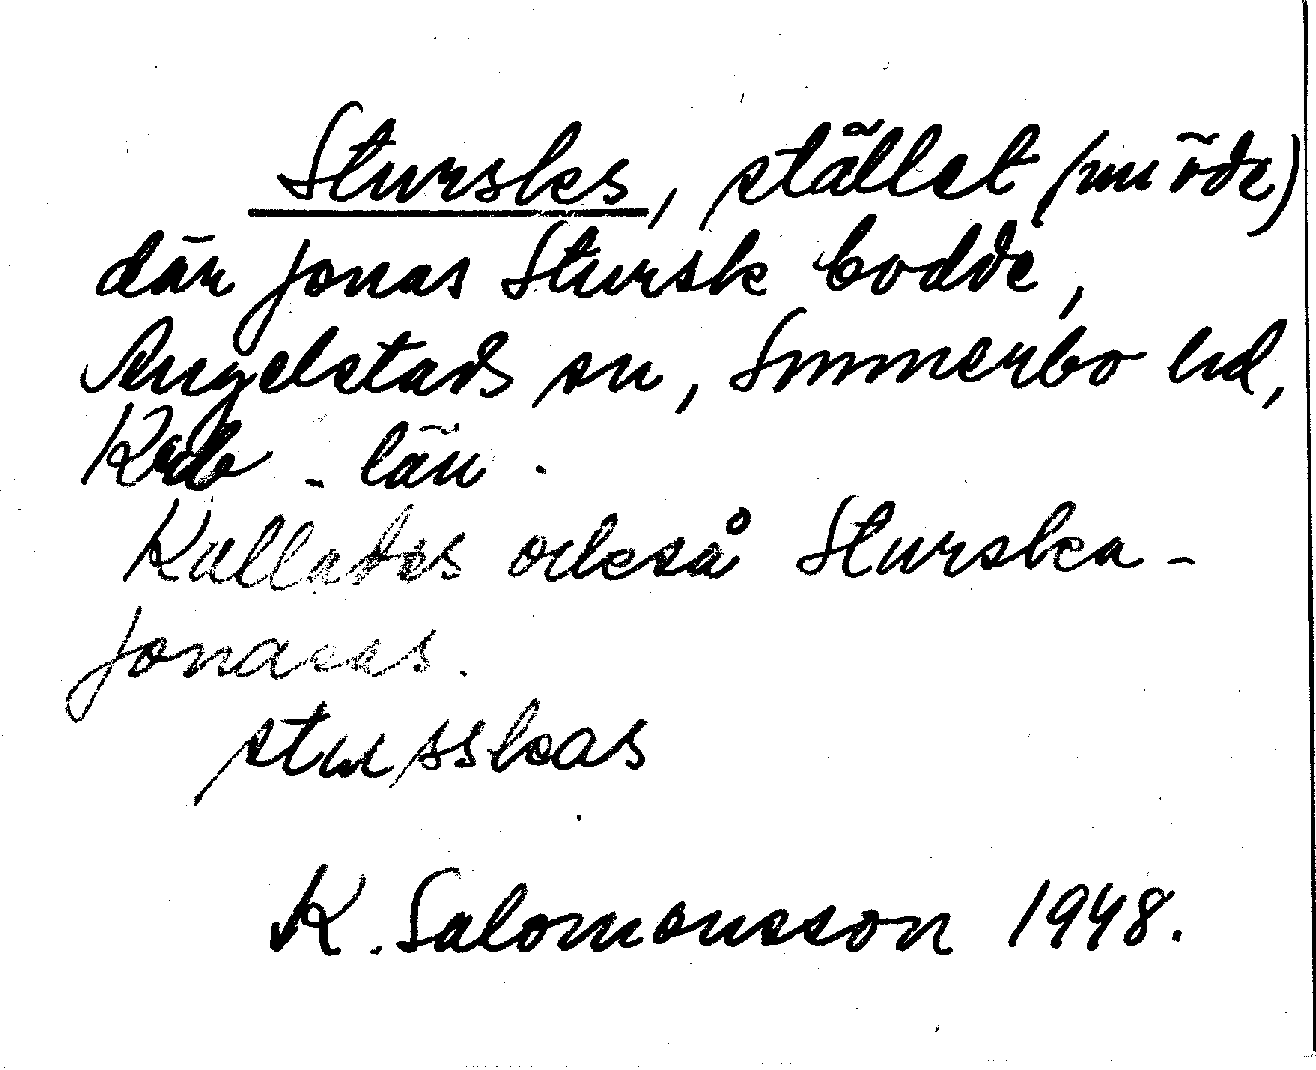 Stursks, stället (nu öde)
där Jonas Stursk bodde,
Angelstads sn, Sunnerbo hd,
Krb - län.
Kallades också Sturska-
Jonasas.
stusskas
K. Salomonsson 1948.